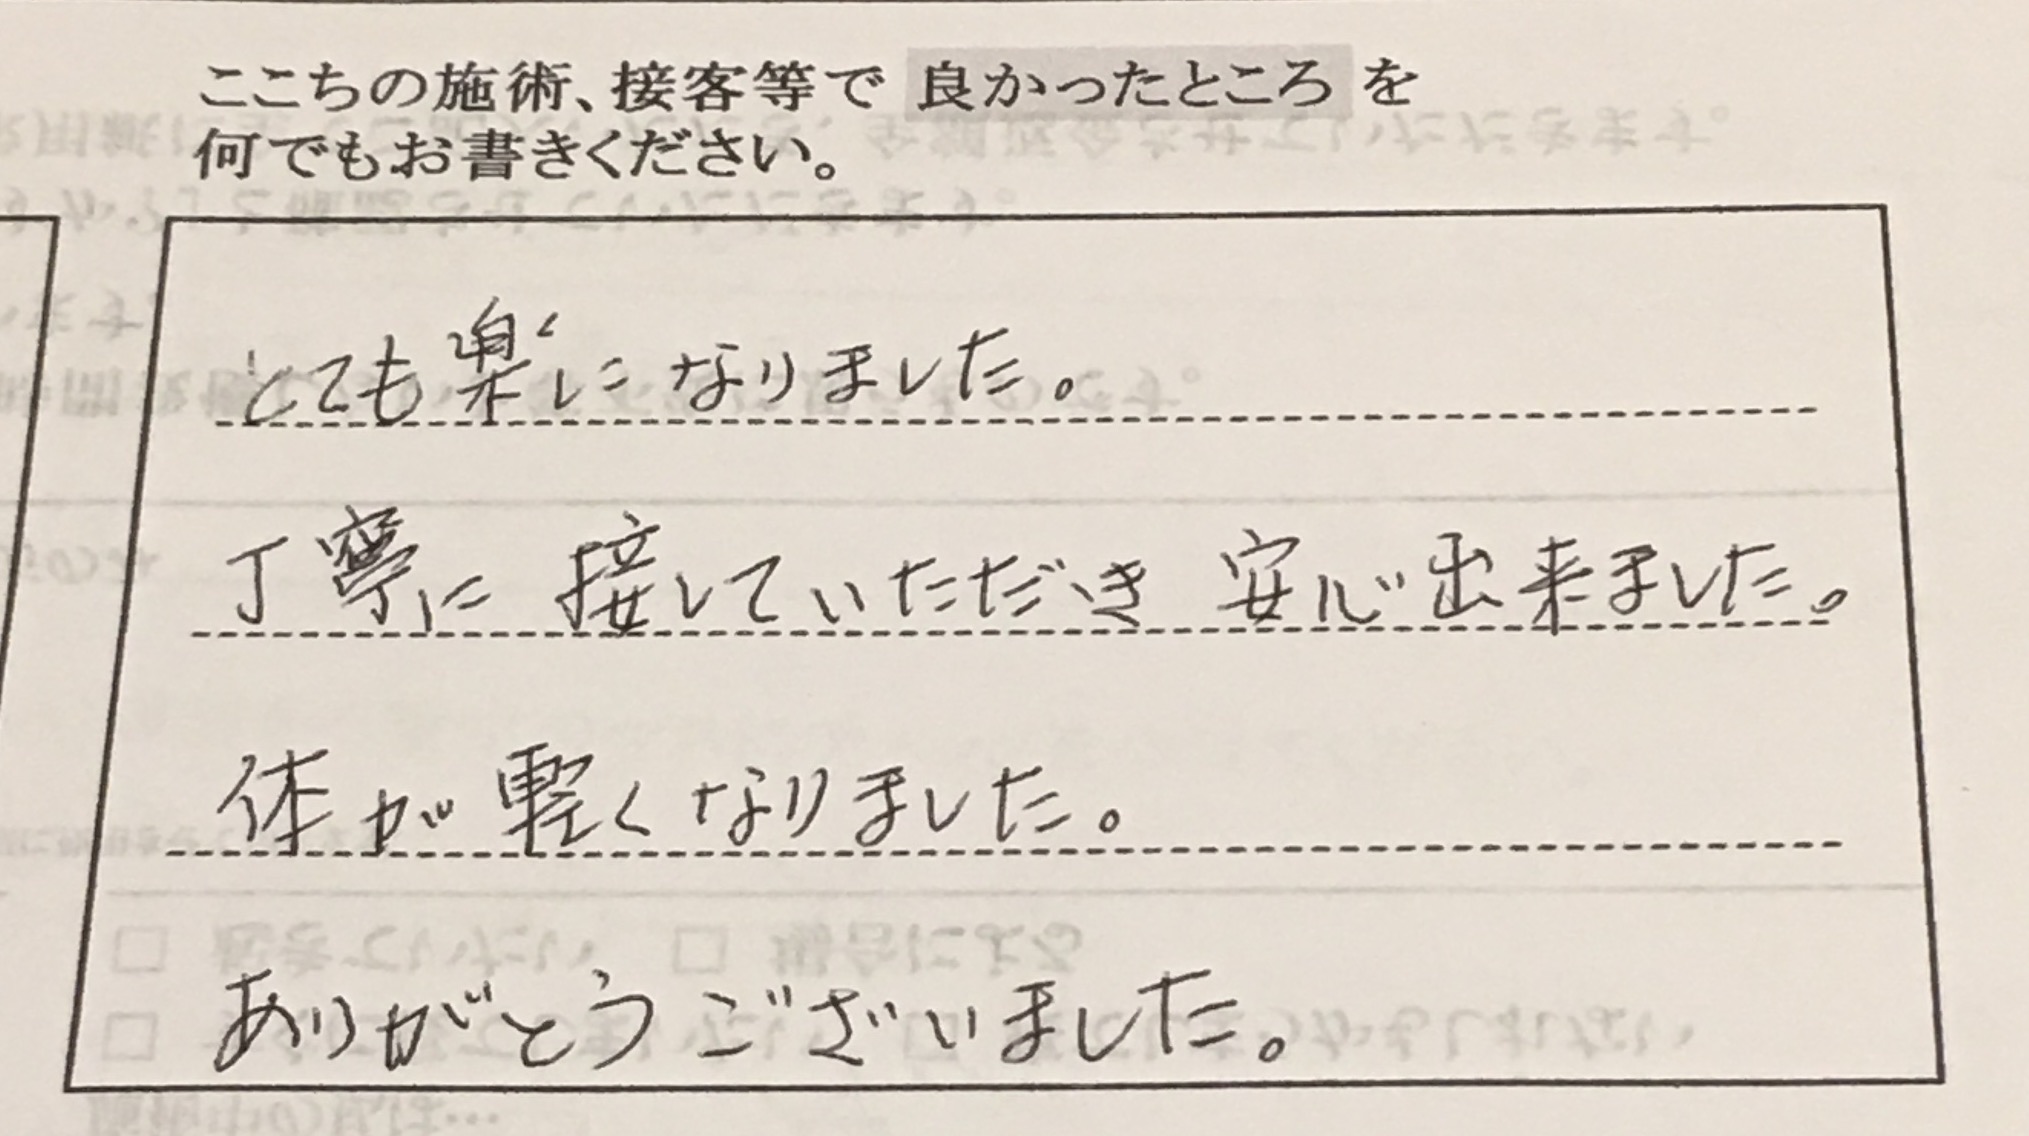 ここちの施術、接客等で 良かったところ を
何でもお書きください。
とても楽になりました。
丁寧に 接していただき 安心出来ました。
体が軽くなりました。
ありがとうございました。